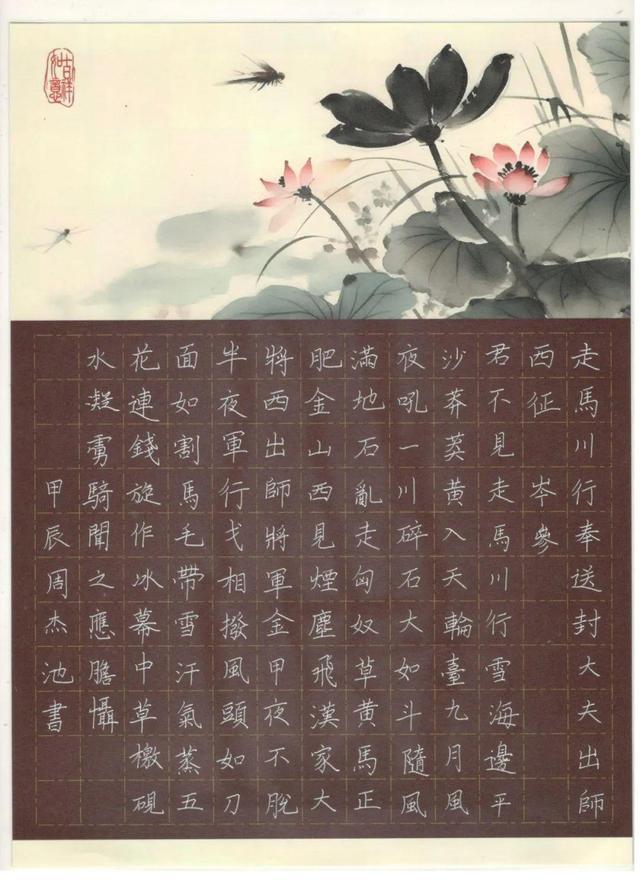 走馬川行奉送封大夫出師
西征 岑參
君不見走馬川行雪海邊平
沙莽莽黃入天輪臺九月風
夜吼一川碎石大如斗隨風
滿地石亂走匈奴草黃馬正
肥金山西見煙塵飛漢家大
將西出師將軍金甲夜不脫
半夜軍行戈相撥風頭如刀
面如割馬毛帶雪汗氣蒸五
花連錢旋作冰幕中草檄硯
水凝虜騎聞之應膽懾
甲辰周杰池書
吉祥如意